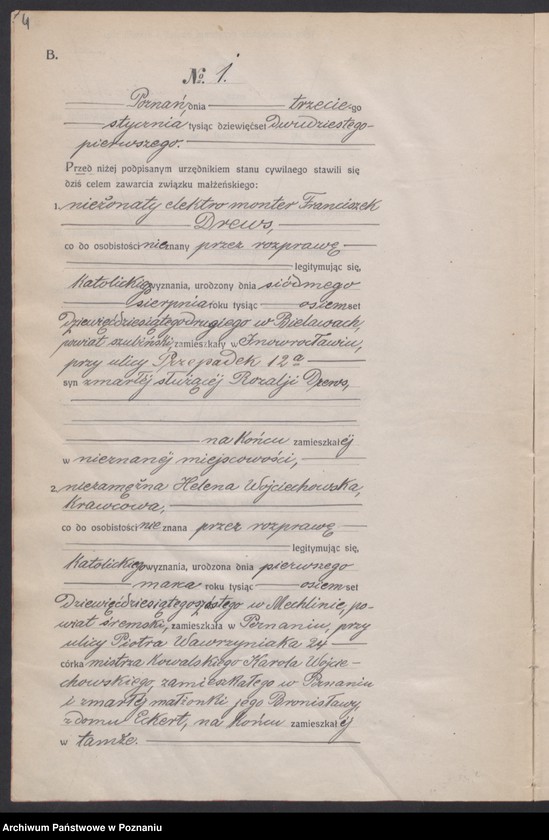 4
B.
No. 1.
Poznań, dnia trzeciego
stycznia tysiąc dziewięćset dwudziestego
pierwszego.
Przed niżej podpisanym urzędnikiem stanu cywilnego stawili się
dziś celem zawarcia związku małżeńskiego:
1. nieżonaty elektro monter Franciszek
Drews,
co do osobistości nieznany przez rozprawę
legitymując się,
Katolickiego wyznania, urodzony dnia siódmego
sierpnia roku tysiąc osiemset
dziewięćdziesiątego drugiego w Bielawach,
powiat szubiński, zamieszkały w Inowrocławiu,
przy ulicy Przypadek 12a
syn zmarłej służącej Rozalji Drews,
na końcu zamieszkałej
w nieznanej miejscowości,
2. niezamężna Helena Wojciechowska,
Krawcowa,
co do osobistości nieznana przez rozprawę
legitymując się,
Katolickiego wyznania, urodzona dnia pierwnego
marca roku tysiąc osiemset
dziewięćdziesiątego szóstego w Mechlinie, po-
wiat śremski, zamieszkała w Poznaniu, przy
ulicy Piotra Wawrzyniaka 24
córka mistrza Kowalskiego Karola Wojcie-
chowskiego, zamieszkałego w Poznaniu
i zmarłej małżonki jego Bronisławy,
z domu Eckert, na końcu zamieszkałej
w tamże.
Archiwum Państwowe w Poznaniu